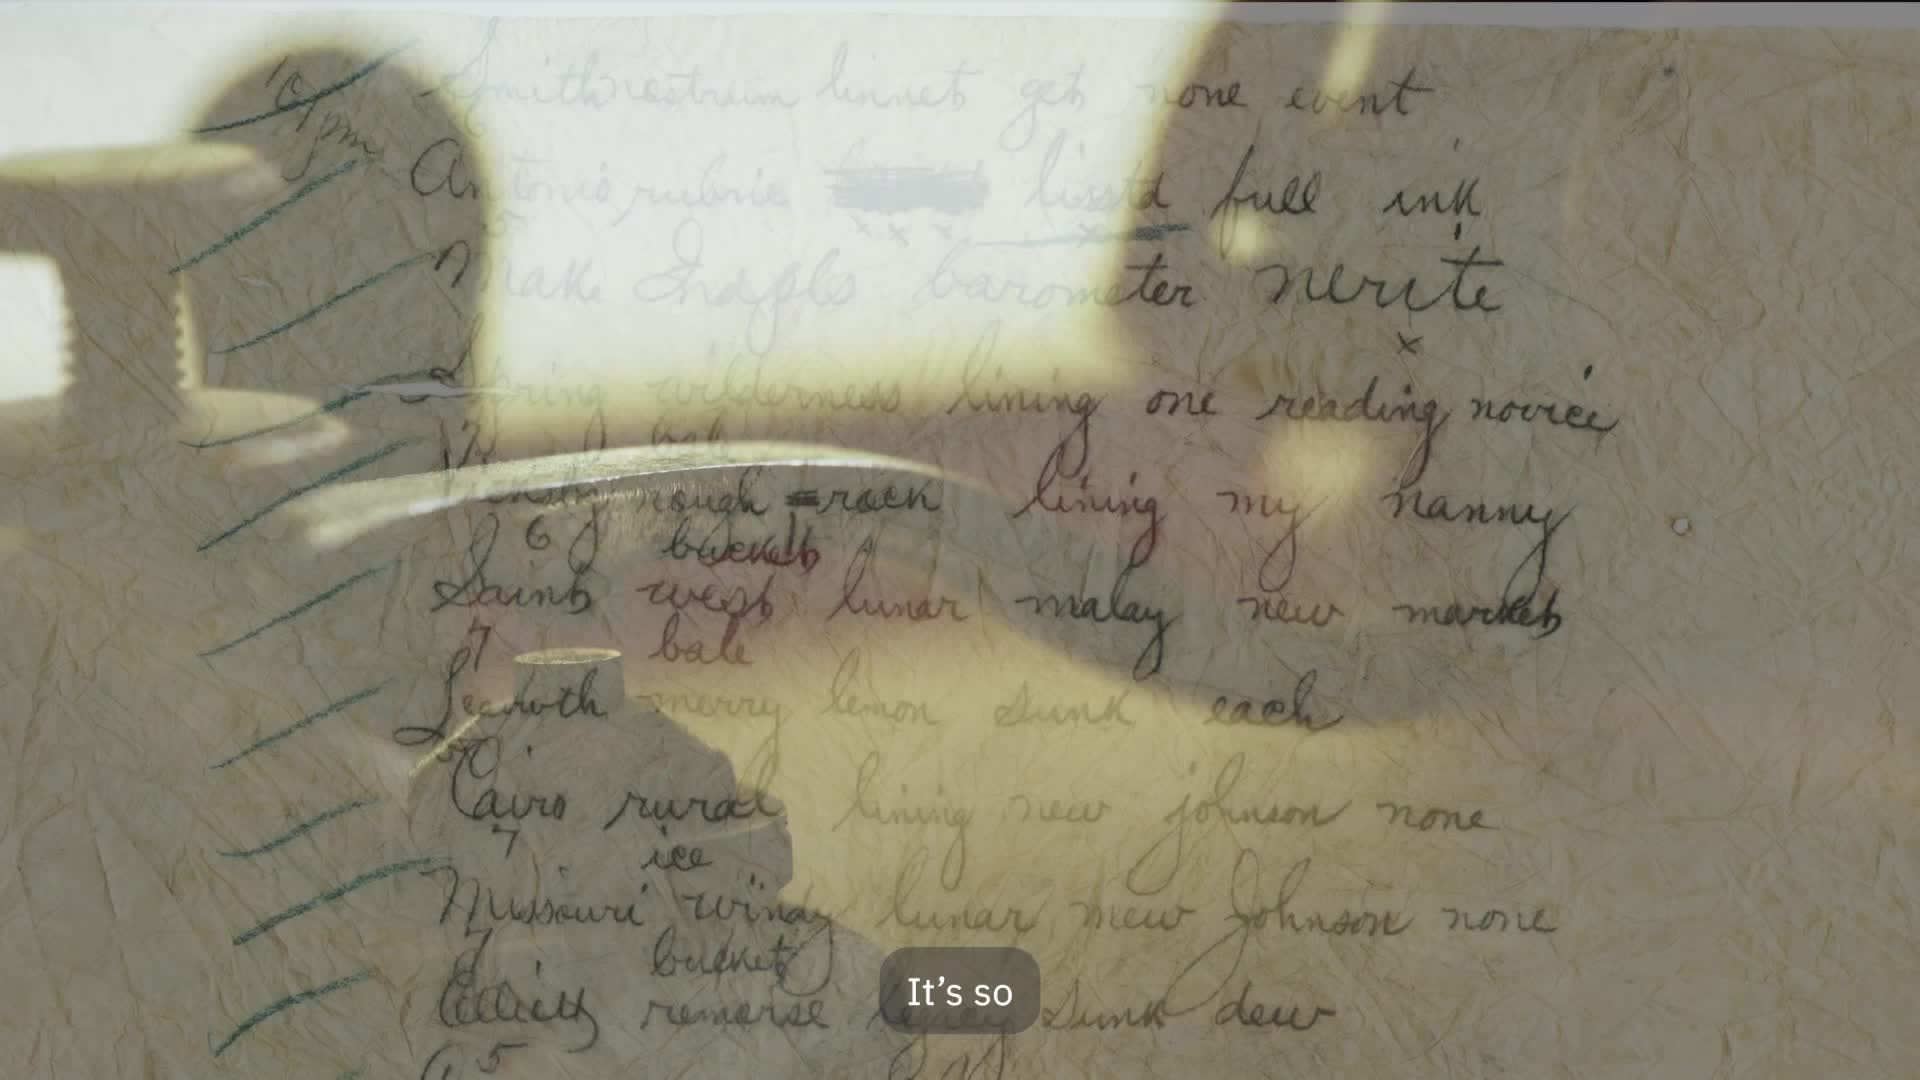 Smith restrain linnet get none event
9pm
Antonio rubric listd full ink
5 x x x x
Make barometer nerite
x
Spring wilderness lining one reading novice
7 bale
rough rock lining my nanny
6 bucket
Saint west lunar malay new market
7 bale
merry lemon sunk each
5
Cairo rural lining new johnson none
7 ice
Missouri windy lunar mew Johnson none
7 bucket
Elliott remorse legacy sunk dew
5
It's so